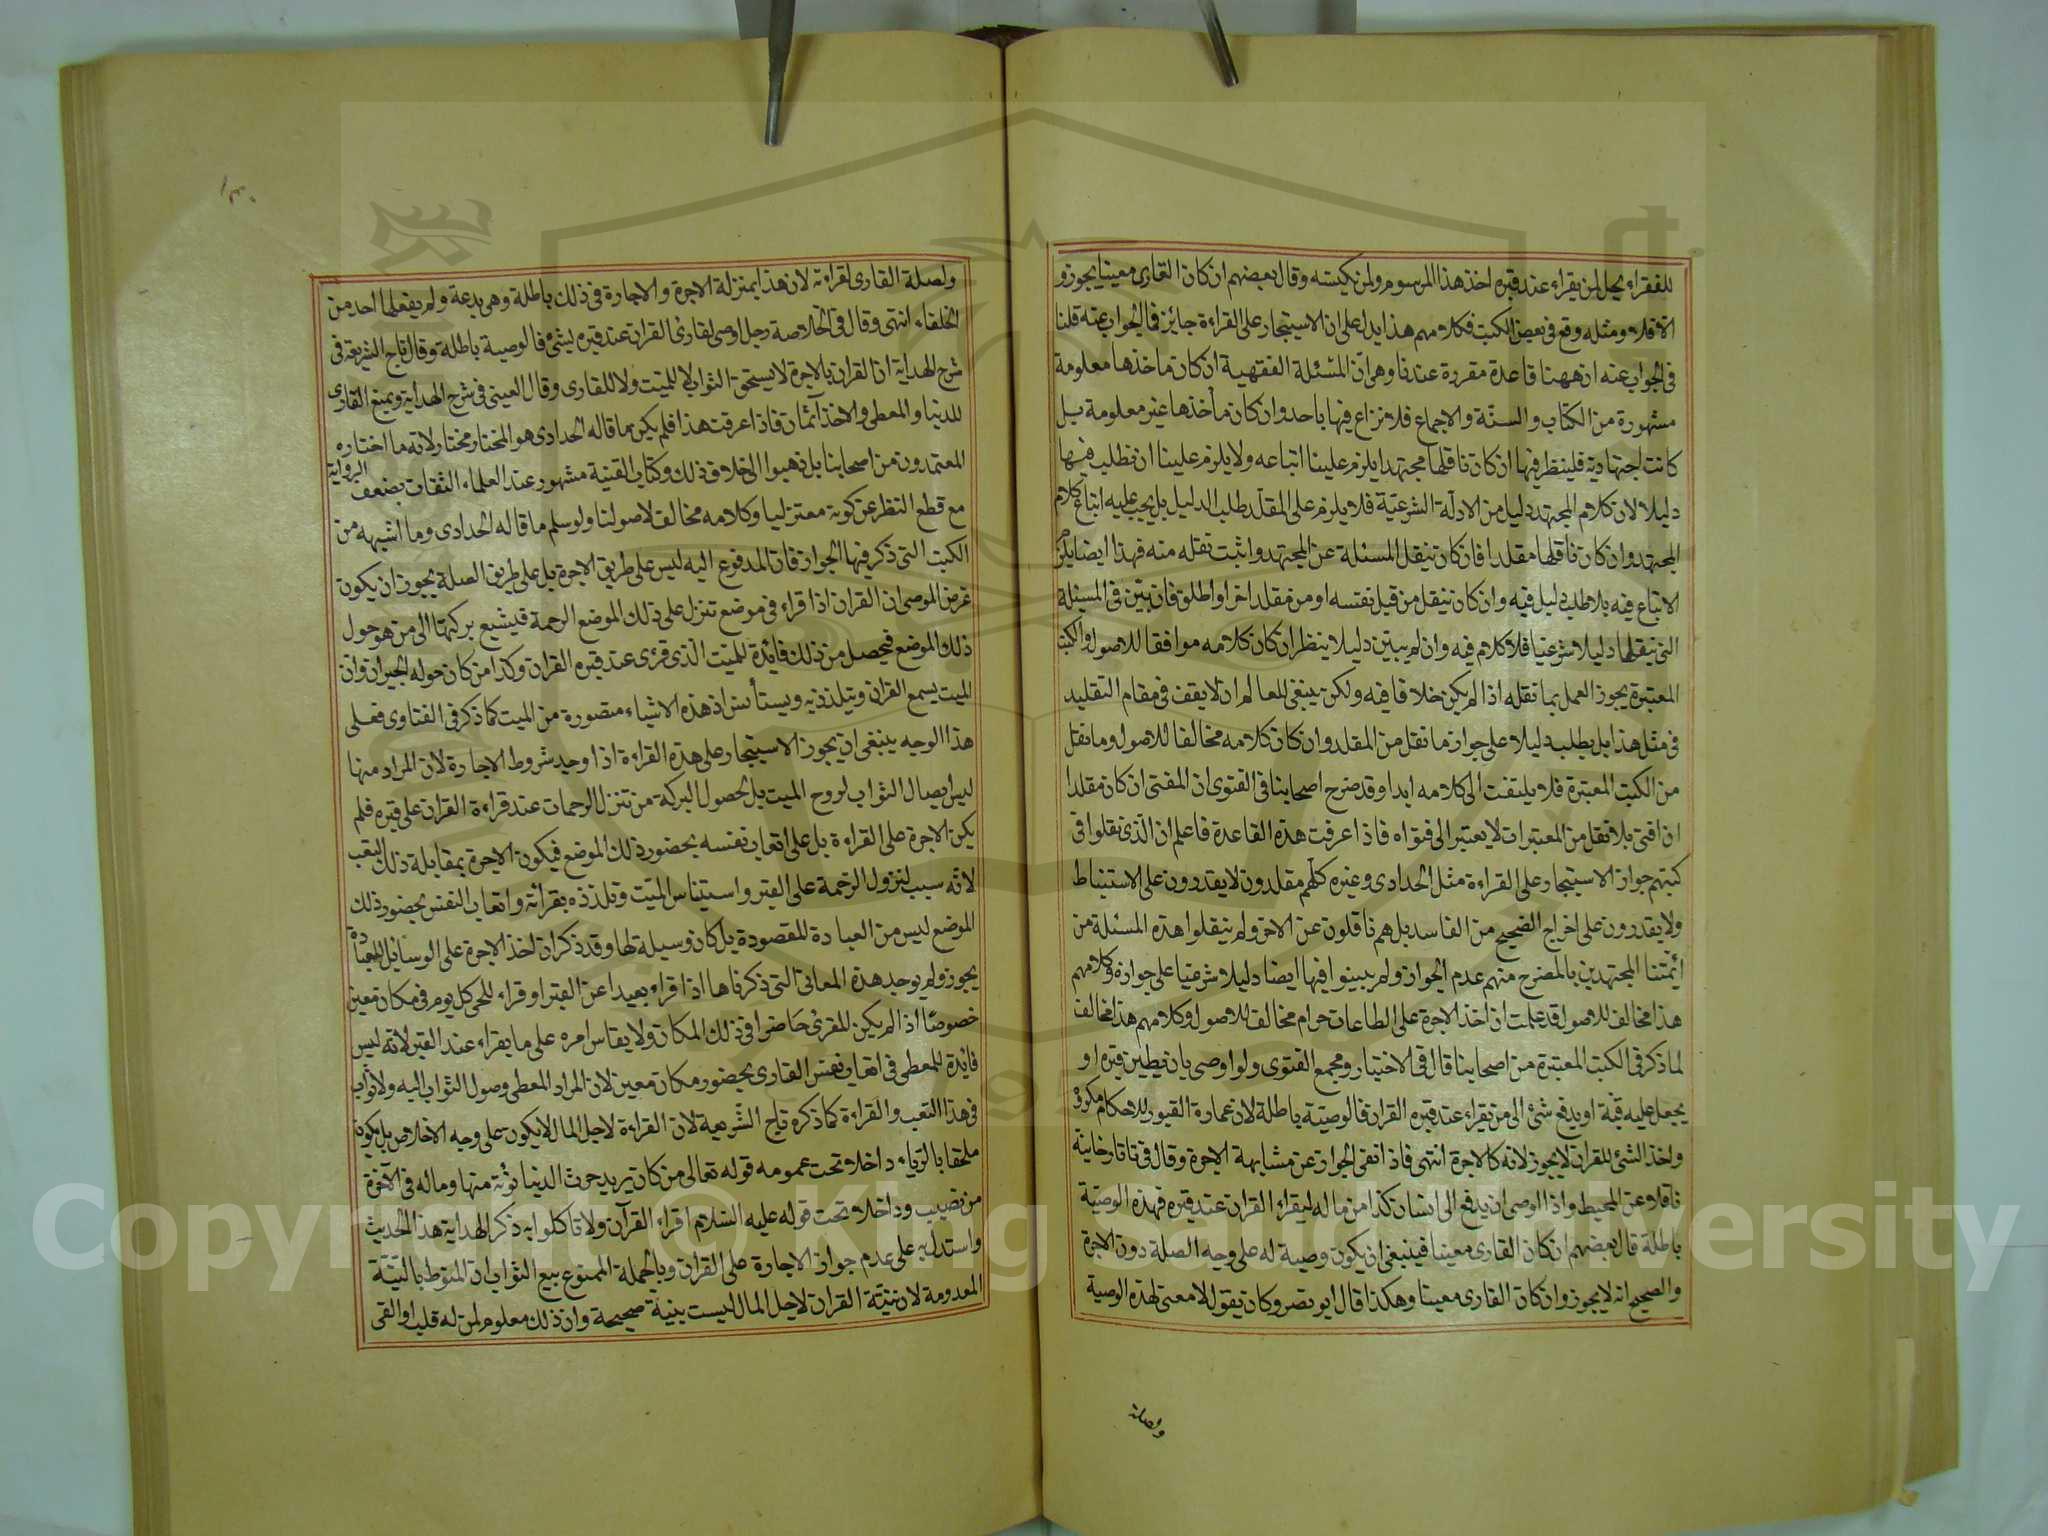 للفقراء يحل لمن يقراء عند قبره اخذ هذا المرسوم ولمن يكيسه وقال بعضهم ان كان القارى معينا يجوز و
الا فلا ومثله وقع فى بعض الكتب فكلامهم هذا يدل على ان الاستيجار على القراءة جايز فما الجواب عنه قلنا
فى الجواب عنه ان ههنا قاعدة مقررة عندنا وهى ان المسئلة الفقهية ان كان ماخذها معلومة
مشهورة من الكتاب و السنة والاجماع فلا نزاع فيها باحد وان كان مأخذها غير معلومة بل
كانت اجتهادية فلينظر فيها ان كان ناقلها مجتهدا يلزم علينا اتباعه ولا يلزم علينا ان نطلب فيها
دليلا لان كلام المجتهد دليل من الادلة الشرعية فلا يلزم على المقلد طلب الدليل بل يجب عليه اتباع كلام
المجتهد وان كان ناقلها مقلدا فان كان ينقل المسئلة عن المجتهد واثبت نقله منه فهذا ايضا يلزم
الاتباع فيه بلا طلب دليل فيه وان كان ينقل من قبل نفسه او من مقلد اخر او اطلق فان بيّن فى المسئلة
التى ينقلها دليلا شرعيا فلا كلام فيه وان لم يبين دليلا ينظر ان كان كلامه موافقا للاصول والكتب
المعتبرة يجوز العمل بما نقله اذا لم يكن خلافا فيه ولكن ينبغى للعالم ان لا يقف فى مقام التقليد
فى مثل هذا بل يطلب دليلا على جواز ما نقل من المقلد وان كان كلامه مخالفا للاصول وما نقل
من الكتب المعتبرة فلا يلتفت الى كلامه ابدا وقد صرح اصحابنا فى الفتوى ان المفتى ان كان مقلدا
ان افتى بلا نقل من المعتبرات لا يعتبر الى فتواه فاذا عرفت هذه القاعدة فاعلم ان الذى نقلوا فى
كتبهم جواز الاستيجار على القراءة مثل الحدادى وغيره كلهم مقلدون لا يقدرون على الاستنباط
ولا يقدرون على اخراج الصحيح من الفاسد بل هم ناقلون عن الاخر ولم ينقلوا هذه المسئلة من
ائمتنا المجتهدين بالمصرح منهم عدم الجواز ولم يبينوا فيها ايضا دليلا شرعيا على جوازه وكلامهم
هذا مخالف للاصول قد علمت ان اخذ الاجرة على الطاعات حرام مخالف للاصول وكلامهم هذا مخالف
لما ذكر فى الكتب المعتبرة من اصحابنا قال فى الاختيار ومجمع الفتوى ولو اوصى بان يطين قبره او
يجعل عليه قبة او يدفع شئ الى من يقراء عند قبره القران فالوصية باطلة لان عمارة القبور للاحكام مكروه
واخذ الشئ للقران لا يجوز لانه كالاجرة انتهى فاذا انتفى الجواز عن مشابهة الاجرة وقال فى تاتارخانية
ناقلا عن المحيط واذا اوصى ان يدفع الى انسان كذا من ماله ليقراء القران عند قبره فهذه الوصية
باطلة قال بعضهم ان كان القارى معينا فينبغى ان يكون وصية له على وجه الصلة دون الاجرة
والصحيح انه لا يجوز وان كان القارى معينا وهكذا قال ابو نصر وكان يقول لا معنى لهذه الوصية
ولصلة
ولصلة القارى لقراءته لان هذا بمنزلة الاجرة والاجارة فى ذلك باطلة وهى بدعة ولم يفعلها احد من
الخلفاء انتهى وقال فى الخلاصة رجل اوصى لقارئ القران عند قبره بشئ فالوصية باطلة وقال تاج الشريعة فى
شرح الهداية ان القران بالاجرة لا يستحق الثواب لا للميت ولا للقارى وقال العينى فى شرح الهداية ويمنع القارى
للدنيا والمعطى والاخذ آثمان فاذا عرفت هذا فلم يكن ما قاله الحدادى هو المختار ومختار لانه ما اختاره
المعتمدون من اصحابنا بل ذهبوا الى خلاف ذلك وكتاب القنية مشهور عند العلماء الثقات بضعف الرواية
مع قطع النظر عن كونه معتزليا وكلامه مخالف لاصولنا ولو سلم ما قاله الحدادى وما اشبهه من
الكتب التى ذكر فيها الجواز فان المدفوع اليه ليس على طريق الاجرة بل على طريق الصلة يجوز ان يكون
غرض الموصى ان القران اذا قراء فى موضع تنزل على ذلك الموضع الرحمة فيشيع بركتها الى من هو حول
ذلك الموضع فيحصل من ذلك فائدة للميت الذى قرئ عند قبره القران وكذا من كان حوله الجيران وان
الميت يسمع القران ويتلذذ به ويستأنس اذ هذه الاشياء متصورة من الميت كما ذكر فى الفتاوى فعلى
هذا الوجه ينبغى ان يجوز الاستيجار على هذه القراءة اذا وجد شروط الاجارة لان المراد منها
ليس ايصال الثواب لروح الميت بل لحصول البركة من تنزل الرحمات عند قراءة القران على قبره فلم
يكن الاجرة على القراءة بل على اتعاب نفسه بحضور ذلك الموضع فيكون الاجرة بمقابلة ذلك التعب
لانه سبب لنزول الرحمة على القبر واستيناس الميت وتلذذه بقرائته واتعاب النفس بحضور ذلك
الموضع ليس من العبادة المقصودة بل كان وسيلة لها وقد ذكر ان اخذ الاجرة على الوسايل للعبادة
يجوز ولم يوجد هذه المعانى التى ذكرناها اذا قراء بعيدا عن القبر او قراء للحى كل يوم فى مكان معين
خصوصًا اذا لم يكن للمقرئ حاضرا فى ذلك المكان ولا يقاس امره على ما يقراء عند القبر لانه ليس
فائدة للمعطى فى اتعاب نفس القارى بحضور مكان معين لان المراد المعطى وصول الثواب اليه ولا ثواب
فى هذا التعب والقراءة كما ذكره تاج الشريعة لان القراءة لاجل المال لا يكون على وجه الاخلاص بل يكون
ملحقا بالرياء داخلا تحت عمومه قوله تعالى من كان يريد حرث الدنيا نؤته منها وماله فى الآخرة
من نصيب وداخلا تحت قوله عليه السلام اقراء القرآن ولا تاكلوا به ذكر الهداية هذا الحديث
واستدل به على عدم جواز الاجارة على القران وبالجملة الممنوع بيع الثواب ان المنوط بالنية
المعدومة لان نية القران لاجل المال ليست بنية صحيحة وان ذلك معلوم لمن له قلب او القى
Copyright © King Saud University